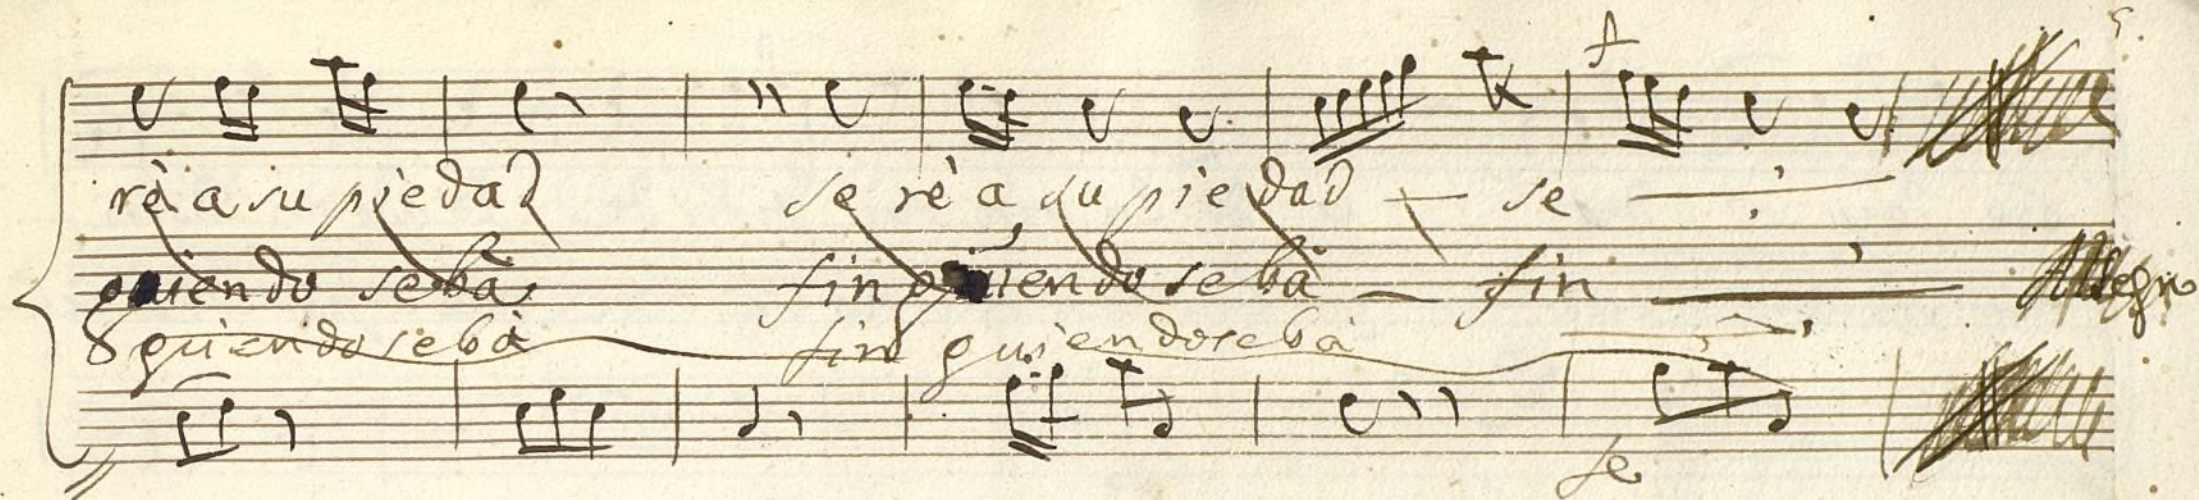 rè a su piedad se rè a su piedad — se
guiendo sebà fin guiendo sebà — fin
guiendo sebà fin guiendo sebà
se